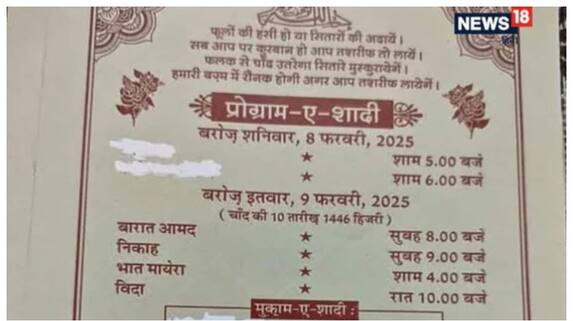 NEWS 18
फूलों की हंसी हो या सितारों की अदायें।
सब आप पर कुरबान हो आप तशरीफ तो लायें।
फलक से चाँद उतरेगा सितारे मुस्कुरायेगें।
हमारी बज़्म में रौनक होगी अगर आप तशरीफ लायेगें।
प्रोग्राम-ए-शादी
बरोज़ शनिवार, 8 फरवरी, 2025
★ शाम 5.00 बजे
★ शाम 6.00 बजे
बरोज़ इतवार, 9 फरवरी, 2025
( चाँद की 10 तारीख़ 1446 हिजरी )
बारात आमद ★ सुबह 8.00 बजे
निकाह ★ सुबह 9.00 बजे
भात मायेरा ★ शाम 4.00 बजे
विदा ★ रात 10.00 बजे
मुक़ाम-ए-शादी :